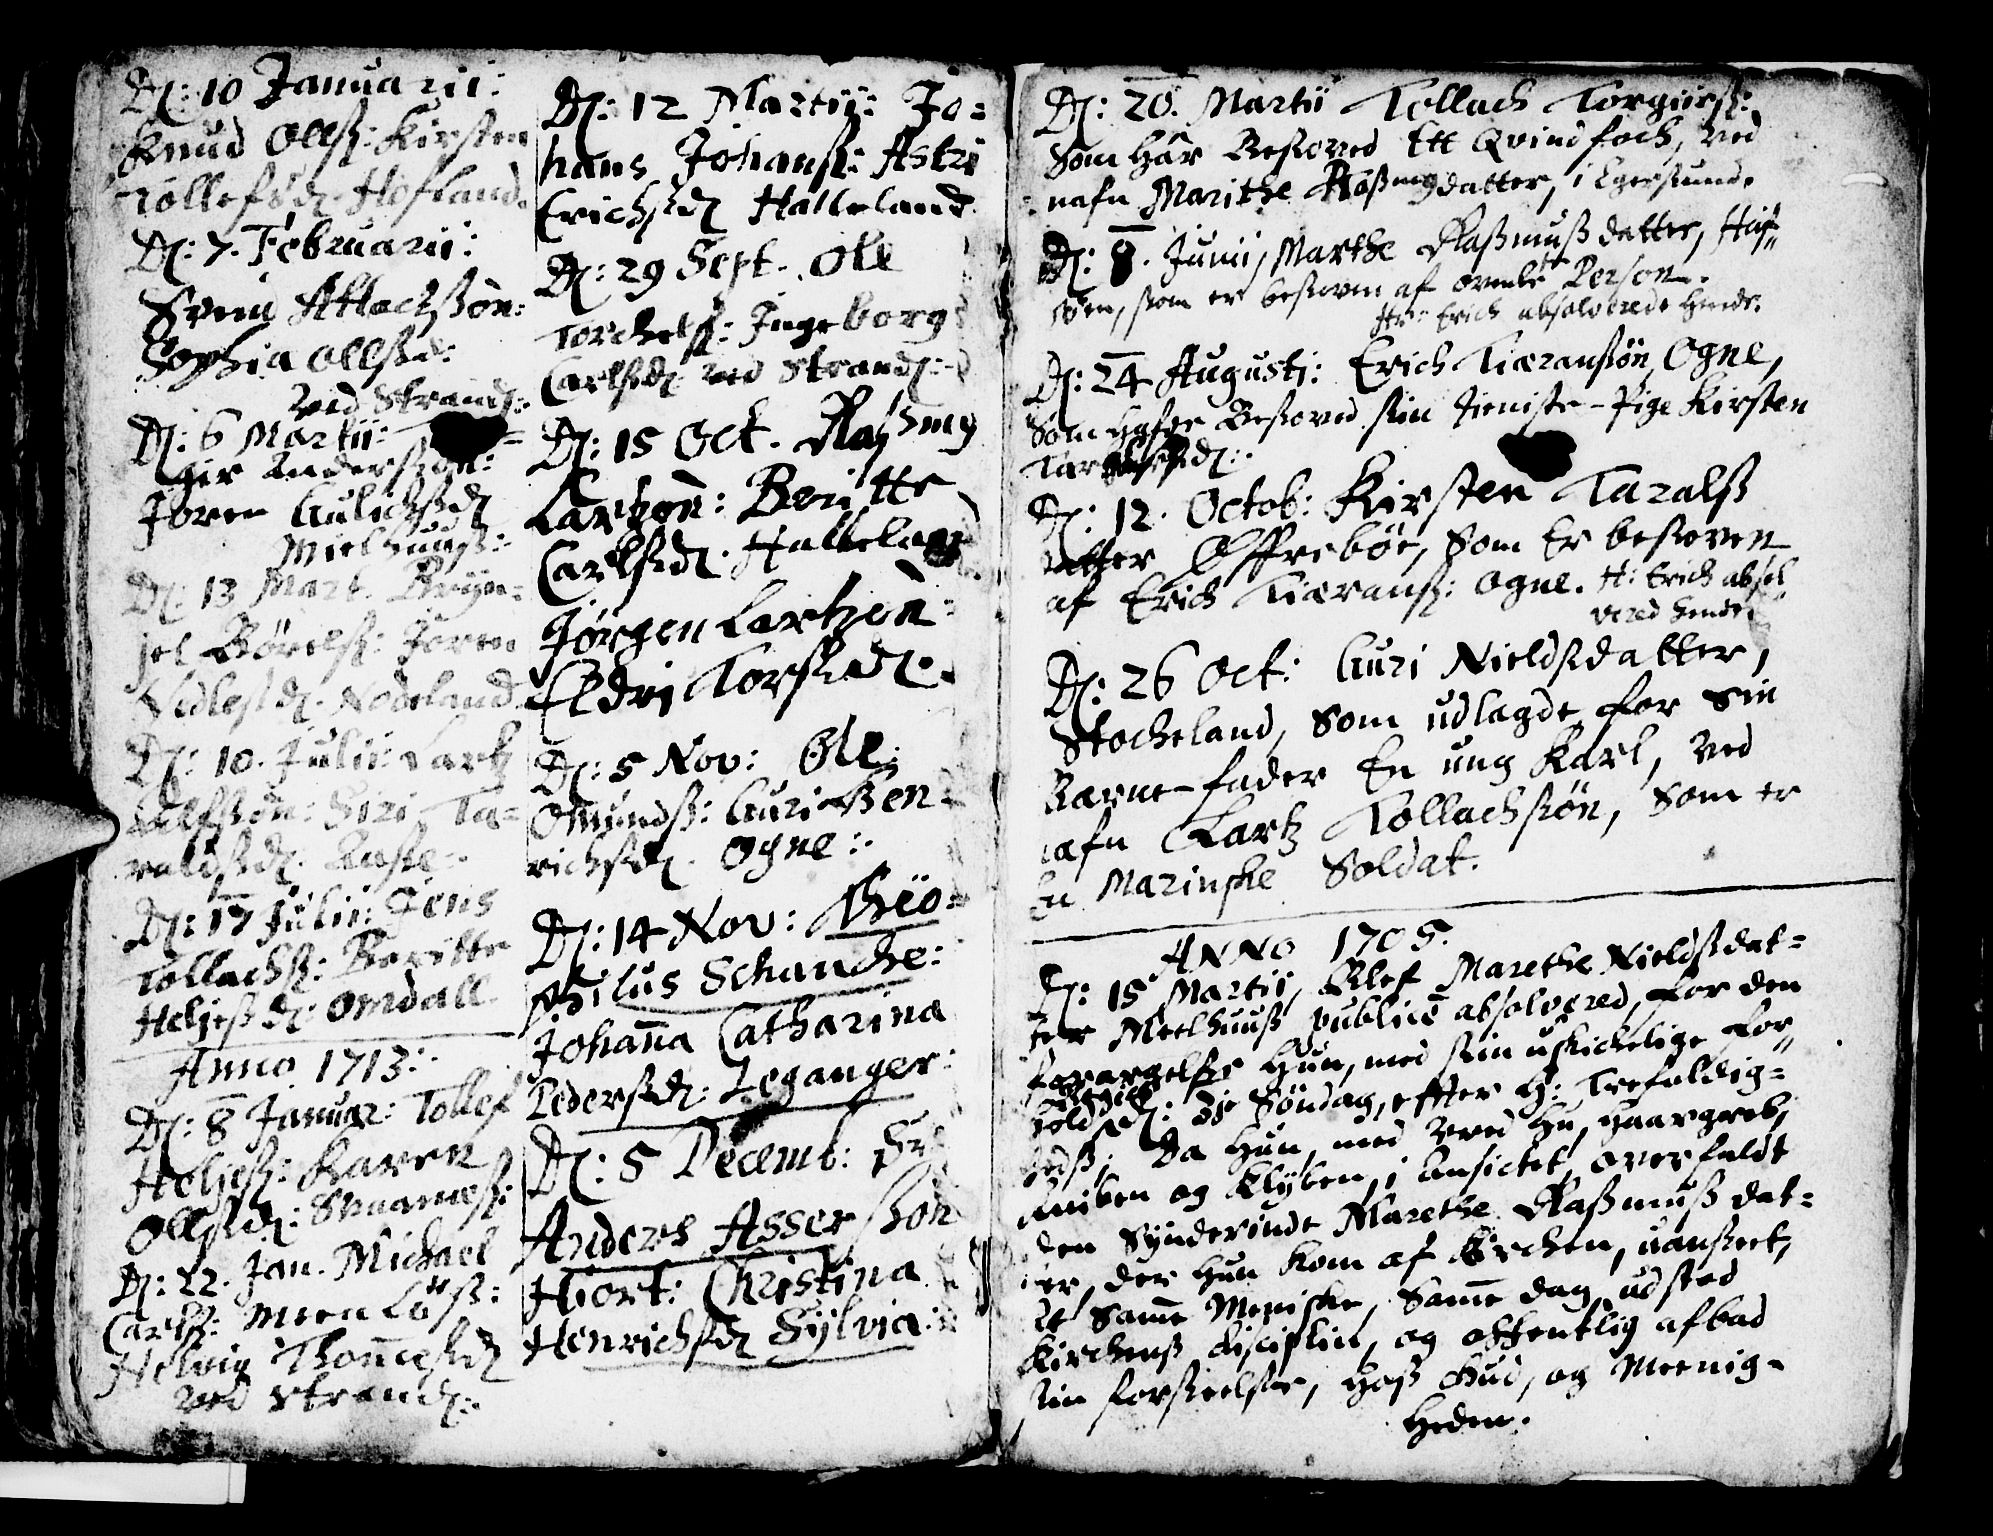 D: 10 Januarii:
Knud Ollß: Kirsten
Tollefsd: Hofland.
D: 7. Februarii:
Svend Attlachßøn:
Sophia Ollsd:
Ved Strand:
D: 6 Martii:
ger Anderßøn:
Joren Aulichsd
Mielhuuß:
D: 13 Mart. Bryn-
jel Børelß: Joren
Vedleßd. Nodeland
D: 10. Julii: Lartz
Siri Ta-
raldßd.
D: 17 Julii: Jens
Tollachß: Beritte
Heljeßd: Omdall
Anno 1713:
D: 8 Januar: Tollef
Heljeß: Karen
Ollsd: Skaarneß:
D: 22. Jan. Michael
Carlß:
Helvig Thommesd
Ved Strand:
D: 12 Martii: Jo-
hans Johanß: Astri
Erichsd Halleland
D: 29 Sept. Ole
Torchelß: Ingeborg
Carlsd ved Strand:
D: 15 Oct. Raßmg
Lartzøn: Beritte
Carlsd. Halleland
Jørgen Lartzøn
Eldri Torsd:
D: 5 Nov: Ole
Omundß: Auri Ben-
richsd. Ogne:
D: 14 Nov: Theo-
philus Schanche:
Johanna Catharina
Pedersd: Leganger:
D: 5 Decemb: Sr
Anders Asserßøn
Hiort: Christina
Henrichsd Sylvia:
D: 20. Martii Tollach Torgiirß:
Som har Besoved Ett Qvindfolch, ved
nafn Marithe Raßmgdatter, i Egersund.
D: 8. Junii, Marthe Raßmußdatter, Haf-
søen, som er besoven af ovenbte Person.
Hr: Erich absolverede hende.
D: 24 Augusti: Erich Tiæranßøn, Ogne,
Som hafver Besoved sin Tieniste-Pige Kirsten
D: 12. Octob: Kirsten Taralß
datter Øffrebøe, Som Er besoven
af Erich Tiæranß: Ogne. H: Erich absol
vered hende
D: 26 Oct: Auri Nieldßdatter,
Stocheland, Som udlagde for Sin
Barne-fader En ung Karl, ved
nafn Lartz Tollachßøn, Som er
En Marinske Soldat.
ANNO 1705.
D: 15 Martii, Blef Marethe Nieldßdat-
ter Meelhuuß publicè absolvered, for den
forargelse Hun, med sin uskickelige for-
hold, D: 3je Søndag, efter H: Trefoldig-
hedß; Da Hun, med vred Hu, haargreb,
kniben og Klyben, i Ansictet, overfaldt
den Synderinde Marethe Raßmuß dat-
ter, der Hun kom af Kirchen, uanseet,
at Samme Meniske, Samme dag, udstod
Kirchenß disciplin, og offentlig afbad
sin forseelse, hoß Gud, og Meenig-
heden.